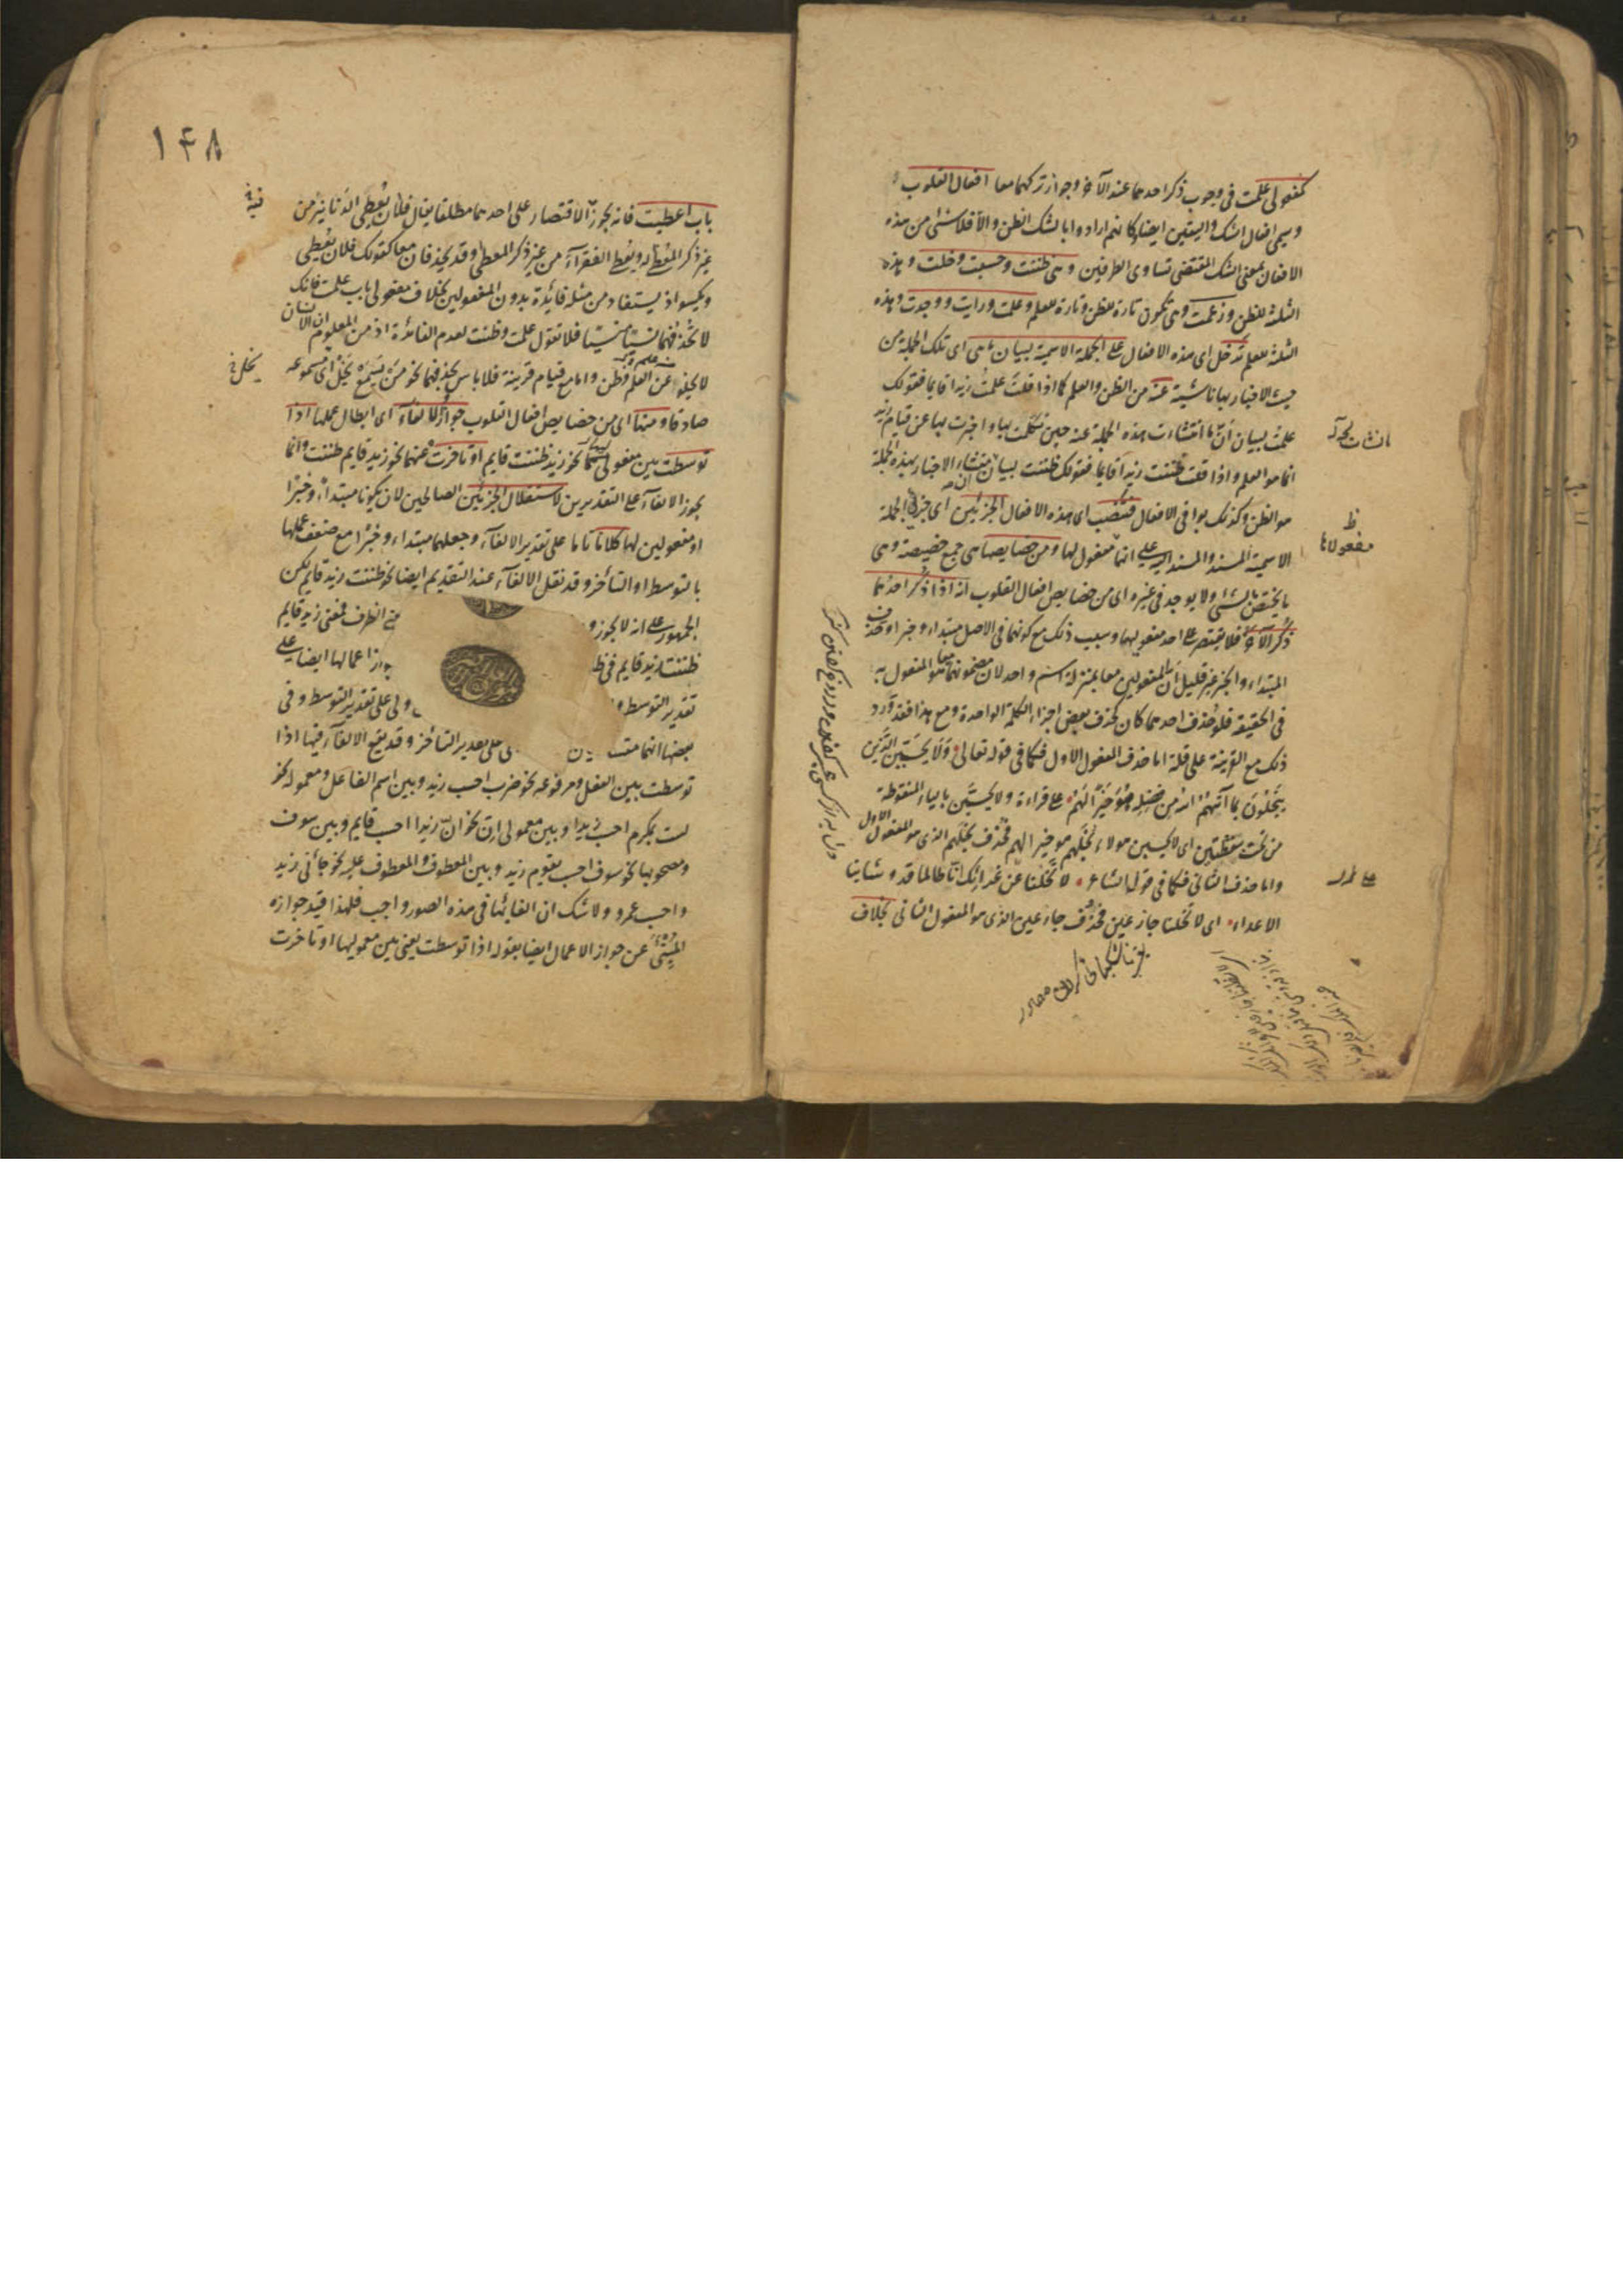 كمفعولى علمت فى وجوب ذكر احدهما عند الآخر وجواز تركهما معا افعال القلوب
وسمى افعال الشك واليقين ايضا كانهم ارادوا بالشك الظن والا فلا شئ من هذه
الافعال بمعنى الشك المقتضى تساوى الطرفين وهى ظننت وحسبت وخلت وهذه
الثلثة للظن وزعمت وهى تكون تارة للظن وتارة للعلم وعلمت ورايت ووجدت وهذه
الثلثة للعلم تدخل اى هذه الافعال على الجملة الاسمية لبيان ما هى اى تلك الجملة من
حيث الاخبار بها ناشية عنه من الظن والعلم كما اذا قلت علمت زيدا قايما فقولك
علمت لبيان ان ما انتشات هذه الجملة عنه حين تكلمت بها واخبرت بها عن قيام زيد
انما هو العلم واذا قلت ظننت زيدا قايما فقولك ظننت لبيان ان منشاء الاخبار بهذه الجملة
هو الظن وكذلك بواقى الافعال فتنصب اى هذه الافعال الجزئين اى جزئى الجملة
الاسمية المسند والمسند اليه على انهما مفعول لها ومن خصايصها هى جمع خصيصة وهى
ما يختص بالشئ ولا يوجد فى غيره اى من خصايص افعال القلوب انه اذا ذكر احدهما
ذكر الآخر فلا يقتصر على احد مفعوليها وسبب ذلك مع كونهما فى الاصل مبتداء وخبرا وحذف
المبتداء والخبر غير قليل ان المفعولين معا بمنزلة اسم واحد لان مضمونهما معا هو المفعول به
فى الحقيقة فلو حذف احدهما كان كحذف بعض اجزاء الكلمة الواحدة ومع هذا فقد ورد
ذلك مع القرينة على قلة اما حذف المفعول الاول فكما فى قوله تعالى ولا يحسبن الذين
يبخلون بما آتيهم الله من فضله هو خيرا لهم على قراءة ولا يحسبن بالياء المنقوطة
من تحت بنقطتين اى لا يحسبن هولاء بخلهم هو خيرا لهم فحذف بخلهم الذى هو المفعول الاول
واما حذف الثانى فكما فى قول الشاعر لا تخلنا عن غرائك انا طالما قد وشا بنا
الاعداء اى لا تخلنا جازعين فحذف جازعين الذى هو المفعول الثانى بخلاف
مفعولاها
١٤٨
باب اعطيت فانه يجوز الاقتصار على احدهما مطلقا يقال فلان يعطى الدنانير من
غير ذكر المعطى له ويعطى الفقراء من غير ذكر المعطى وقد يحذفان معا كقولك فلان يعطى
ويكسو اذ يستفاد من مثله فائدة بدون المفعولين بخلاف مفعولى باب علمت فانك
لا تحذفهما نسيا منسيا فلا تقول علمت وظننت لعدم الفائدة اذ من المعلوم ان الانسان
لا يخلو عن العلم وظن واما مع قيام قرينة فلا باس بحذفهما نحو من يسمع يخل اى مسموعه
صادقا ومنها اى من خصايص افعال القلوب جواز الالغاء اى ابطال عملها اذا
توسطت بين مفعوليها نحو زيد ظننت قايم او تاخرت عنهما نحو زيد قايم ظننت وانما
يجوز الالغاء على التقديرين لاستقلال الجزئين الصالحين لان يكونا مبتداء وخبرا
او مفعولين لها كلاما تاما على تقدير الالغاء وجعلهما مبتداء وخبرا مع ضعف عملها
بالتوسط او التاخر وقد نقل الالغاء عند التقديم ايضا نحو ظننت زيد قايم لكن
الجمهور على انه لا يجوز و الظرف فمعنى زيد قايم
ظننت زيد قايم فى ظ اعمالها ايضا على
تقدير التوسط و ولى على تقدير التوسط وفى
بعضها انهما متسا على تقدير التاخر وقد يقع الالغاء فيها اذا
توسطت بين الفعل ومرفوعه نحو ضرب احسب زيد وبين اسم الفاعل ومعموله نحو
لست بمكرم احسب زيدا وبين معمولى ان نحو ان زيدا احسب قايم وبين سوف
ومصحوبها نحو سوف احسب يقوم زيد وبين المعطوف والمعطوف عليه نحو جائنى زيد
واحسب عمرو ولا شك ان الغائها فى هذه الصور واجب فلهذا قيد جوازه
المنبئ عن جواز الاعمال ايضا بقوله اذا توسطت يعنى بين معموليها او تاخرت